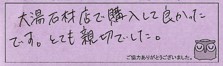 大湯石材店で購入して良かった
です。とても親切でした。
ご協力ありがとうございました。